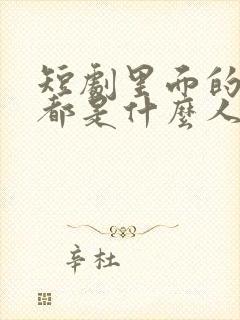 短劇里面的
都是什麼人
辛杜